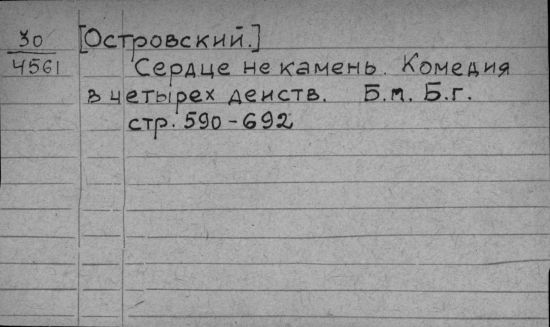 30 [Островский.]
4561 Сердце не камень. Комедия
в четырех действ. Б.м. Б.г.
стр. 590-692